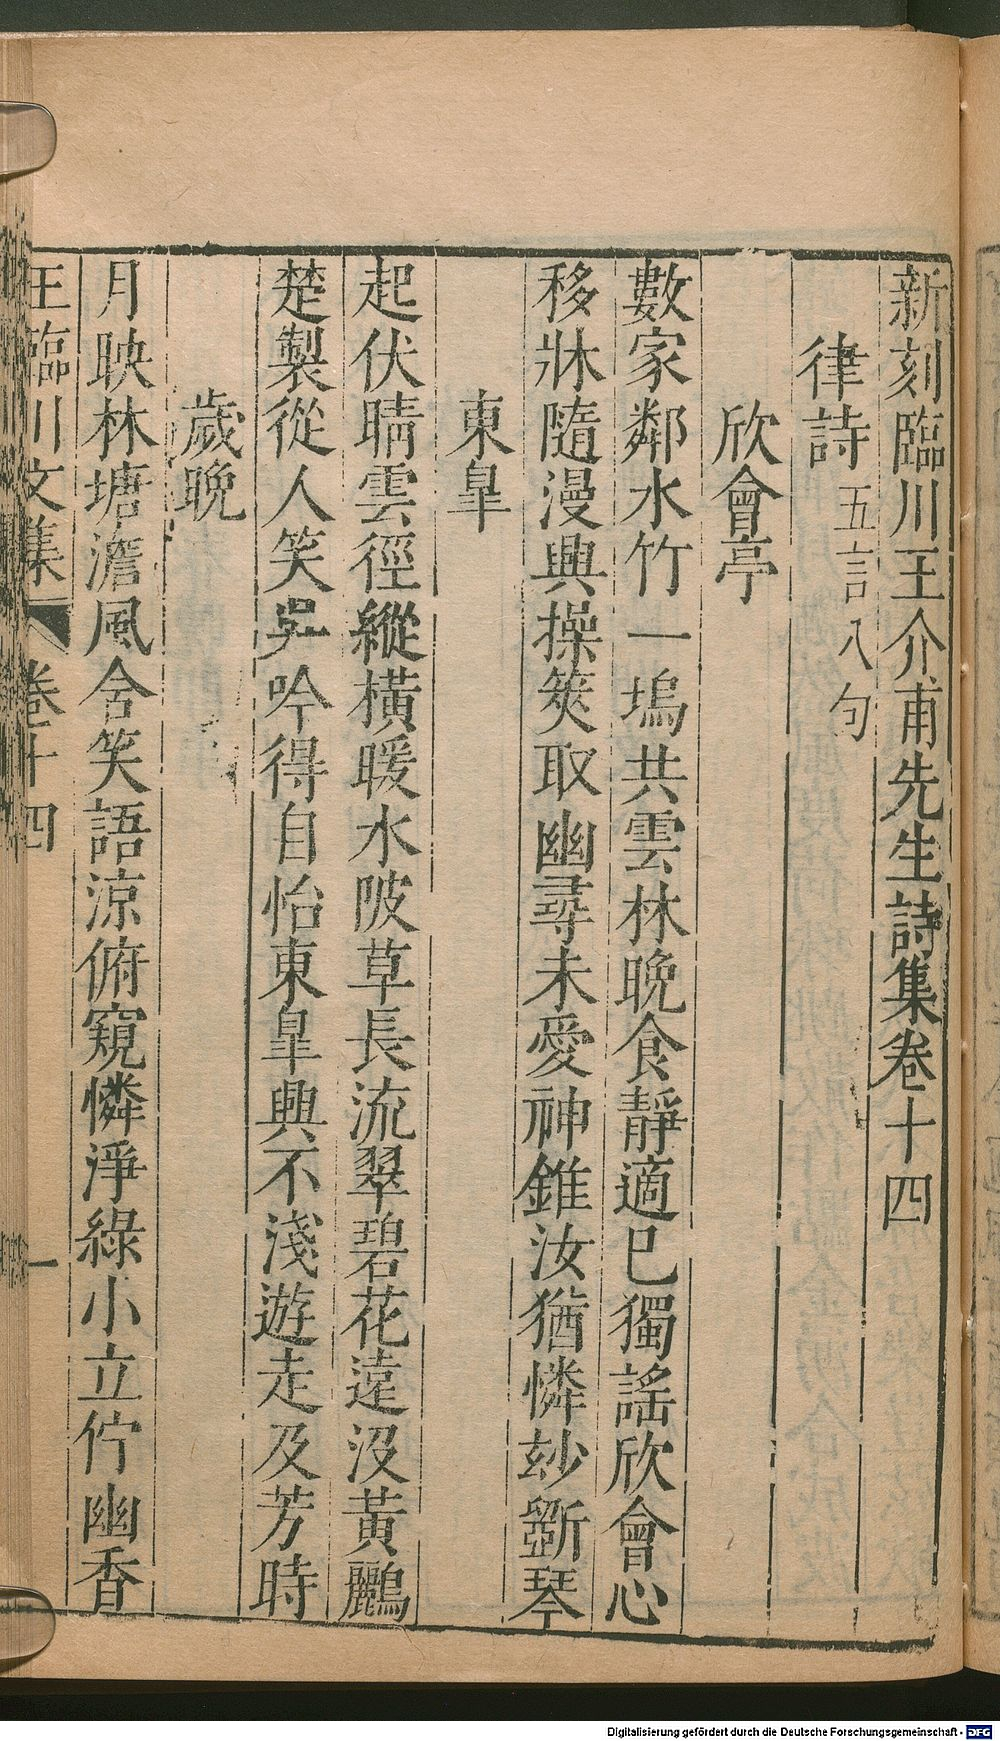 新刻臨川王介甫先生詩集卷十四
律詩 五言八句
欣會亭
數家鄰水竹一塢共雲林晚食靜適已獨謠欣會心
移牀隨漫興操筴取幽尋未愛神錐汝猶憐玅斲琴
東皐
起伏晴雲徑縱橫暖水陂草長流翠碧花遠沒黃鸝
楚製從人笑吳吟得自怡東皐興不淺遊走及芳時
歲晚
月映林塘澹風含笑語涼俯窺憐淨綠小立佇幽香
王臨川文集 卷十四 一
Digitalisierung gefördert durch die Deutsche Forschungsgemeinschaft - DFG